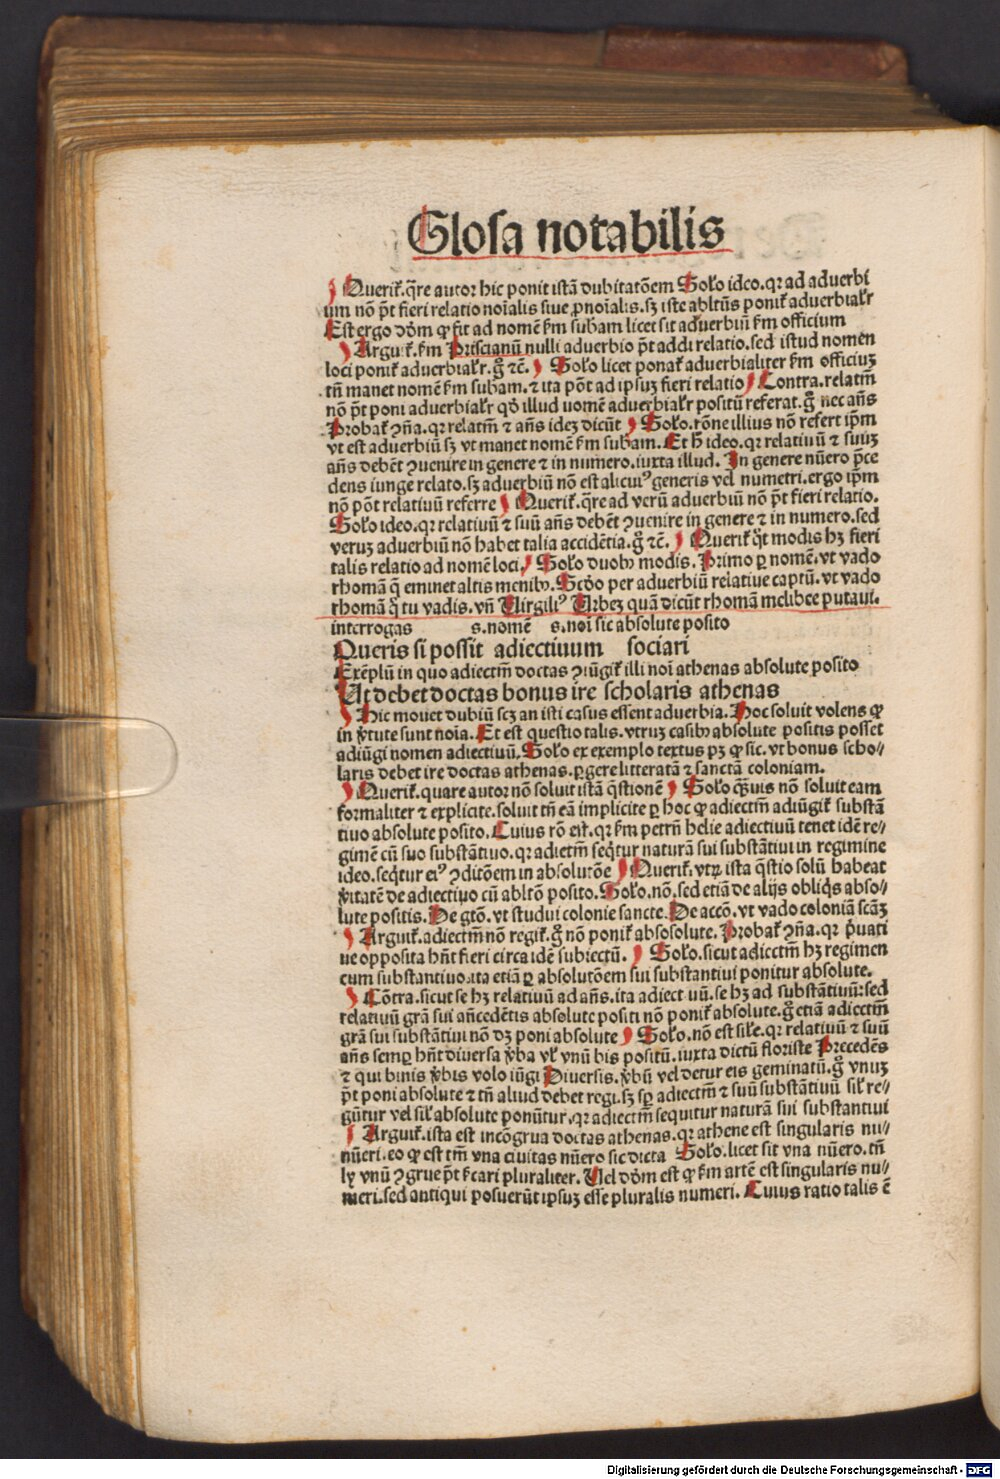 Glosa notabilis
Querit᷑. q̄re autor hic ponit istā dubitatōem Solo ideo. qꝛ ad aduerbi
um nō pt̄ fieri relatio noīalis siue ꝓnoīalis. sꝫ iste abltūs ponit᷑ aduerbialr
Est ergo dōm ꝙ fit ad nomē s̄m subam licet sit aduerbiū s̄m officium
Arguit᷑. s̄m Priscianū nulli aduerbio pt̄ addi relatio. sed istud nomen
loci ponit᷑ aduerbialr. gͦ ⁊c̄. Solo licet ponat᷑ aduerbialiter s̄m officiuꝫ
tn̄ manet nomē s̄m subam. ⁊ ita pōt ad ipsuꝫ fieri relatio Contra. relatm̄
nō pt̄ poni aduerbialr qd̄ illud nomē aduerbialr positū referat. gͦ nec an̄s
Probat᷑ ꝯn̄a. qꝛ relatm̄ ⁊ an̄s ideꝫ dicūt Solo. rōne illius nō refert ip̄m
vt est aduerbiū sꝫ vt manet nomē s̄m subam. Et h̄ ideo. qꝛ relatiuū ⁊ suuꝫ
an̄s debēt ꝯuenire in genere ⁊ in numero. iuxta illud. In genere nūero p̄ce
dens iunge relato. sꝫ aduerbiū nō est alicuiꝰ generis vel numeri. ergo ip̄m
nō pōt relatiuū referre Querit᷑. q̄re ad verū aduerbiū nō pt̄ fieri relatio.
Solo ideo. qꝛ relatiuū ⁊ suū an̄s debēt ꝯuenire in genere ⁊ in numero. sed
veruꝫ aduerbiū nō habet talia accidētia. gͦ ⁊c̄. Querit᷑ q̊t modis hꝫ fieri
talis relatio ad nomē loci. Solo duobꝫ modis. Primo ꝑ nomē. vt vado
rhomā q̄ eminet altis menibꝫ. Scd̄o per aduerbiū relatiue captū. vt vado
rhomā q̊ tu vadis. vn̄ Virgiliꝰ Vrbeꝫ quā dicūt rhomā melibee putaui.
interrogas s. nomē s. noī sic absolute posito
Queris si possit adiectiuum sociari
Exēplū in quo adiectm̄ doctas ꝯiūgit᷑ illi noī athenas absolute posito
Ut debet doctas bonus ire scholaris athenas
Hic mouet dubiū scꝫ an isti casus essent aduerbia. Hoc soluit volens ꝙ
in v̄tute sunt noīa. Et est questio talis. vtruꝫ casibꝫ absolute positis posset
adiūgi nomen adiectiuū. Solo ex exemplo textus pꝫ ꝙ sic. vt bonus scho⸗
laris debet ire doctas athenas. ꝑgere litteratā ⁊ sanctā coloniam.
Querit᷑. quare autor nō soluit istā q̄stionē Solo q̄uis nō soluit eam
formaliter ⁊ explicite. soluit tn̄ eā implicite ꝑ hoc ꝙ adiectm̄ adiūgit᷑ substā
tiuo absolute posito. Cuius rō est. qꝛ s̄m petrū helie adiectiuū tenet idē re⸗
gimē cū suo substātiuo. qꝛ adietm̄ seq̄tur naturā sui substātiui in regimine
ideo. seq̄tur eiꝰ ꝯditōem in absolutōe Querit᷑. vtꝝ ista q̄stio solū habeat
v̄itatē de adiectiuo cū abltō posito. Solo. nō. sed etiā de alijs obliq̄s abso⸗
lute positis. De gtō. vt studui colonie sancte. De accō. vt vado coloniā scāꝫ
Arguit᷑. adiectm̄ nō regit᷑. gͦ nō ponit᷑ absosolute. Probat᷑ ꝯn̄a. qꝛ p̄uati
ue opposita hn̄t fieri circa idē subiectū. Solo. sicut adiectm̄ hꝫ regimen
cum substantiuo. ita etiā ꝑ absolutōem sui substantiui ponitur absolute.
Cōtra. sicut se hꝫ relatiuū ad an̄s. ita adiect uū. se hꝫ ad substātiuū: sed
relatiuū grā sui an̄cedētis absolute positi nō ponit᷑ absolute. gͦ etiā adiectm̄
grā sui substātiui nō dꝫ poni absolute Solo. nō est sile. qꝛ relatiuū ⁊ suū
an̄s semꝑ hn̄t diuersa v̄ba vl̄ vnū bis positū. iuxta dictū floriste Precedēs
⁊ qui binis v̄bis volo iūgi Diuersis. v̄bū vel detur eis geminatū. gͦ vnuꝫ
pt̄ poni absolute ⁊ tn̄ aliud debet regi. sꝫ sꝑ adiectm̄ ⁊ suū substātiuū sil̄ re⸗
gūtur vel sil̄ absolute ponūtur. qꝛ adiectm̄ sequitur naturā sui substantiui
Arguit᷑. ista est incōgrua doctas athenas. qꝛ athene est singularis nu⸗
nūeri. eo ꝙ est tm̄ vna ciuitas nūero sic dicta Solo. licet sit vna nūero. tn̄
lꝫ vnū ꝯgrue pt̄ s̄cari pluraliter. Vel dōm est ꝙ s̄m artē est singularis nu⸗
meri. sed antiqui posuerūt ipsuꝫ esse pluralis numeri. Cuius ratio talis ē
Digitalisierung gefördert durch die Deutsche Forschungsgemeinschaft - DFG